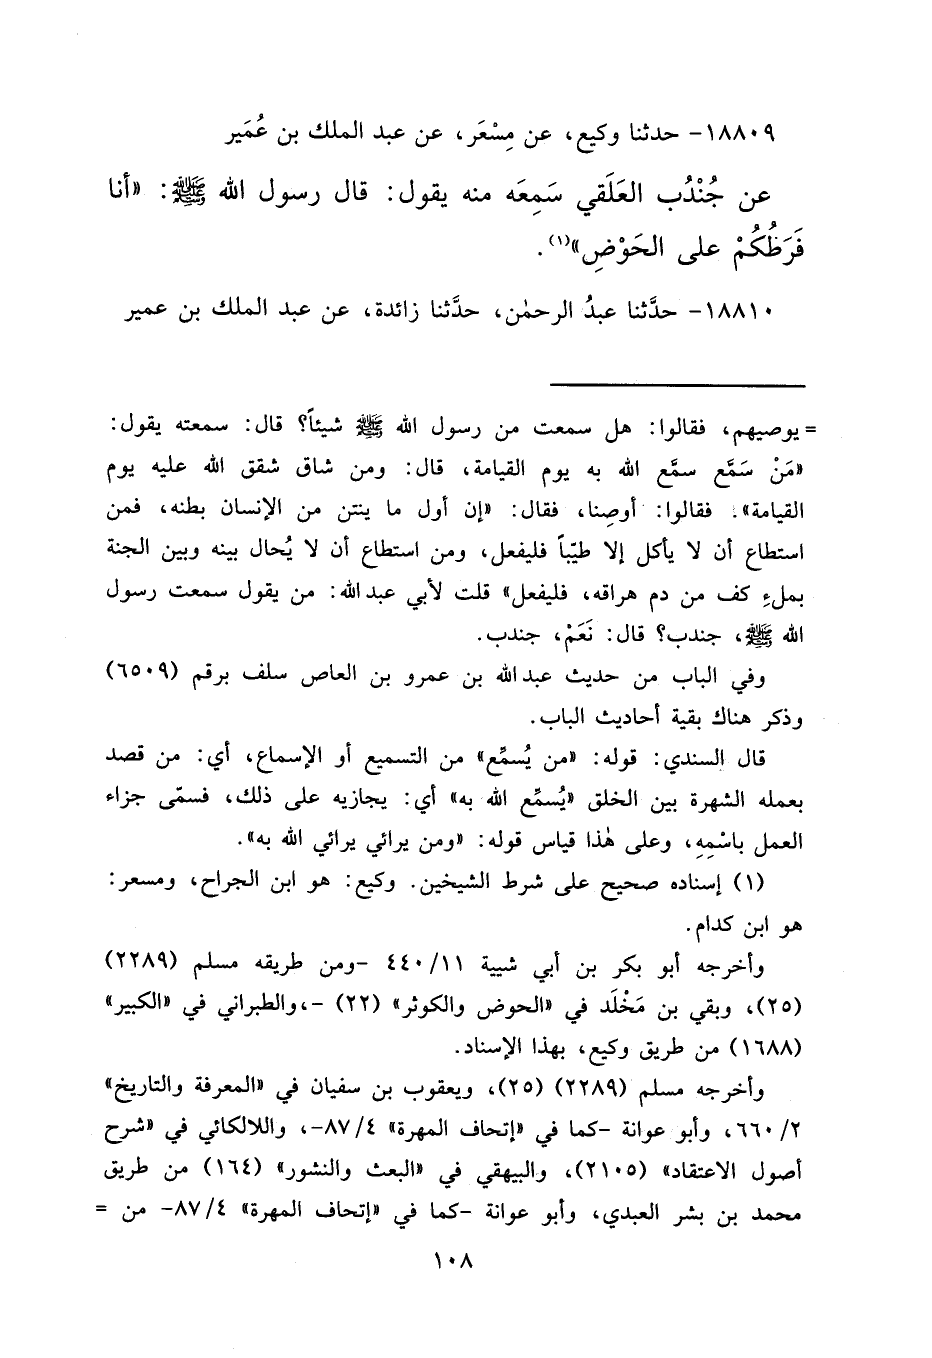 ١٨٨٠٩- حدثنا وكيع، عن مِسْعَر، عن عبد الملك بن عُمَير
عن جُنْدُب العَلَقي سَمِعَه منه يقول: قال رسول الله ﷺ: «أنا
فَرَطُكُمْ على الحَوْضِ»(١).
١٨٨١٠- حدَّثنا عبدُ الرحمٰن، حدَّثنا زائدة، عن عبد الملك بن عمير
= يوصيهم، فقالوا: هل سمعت من رسول الله ﷺ شيئاً؟ قال: سمعته يقول:
«مَنْ سَمَّع سمَّع الله به يوم القيامة، قال: ومن شاق شقق الله عليه يوم
القيامة». فقالوا: أوصِنا، فقال: «إن أول ما ينتن من الإنسان بطنه، فمن
استطاع أن لا يأكل إلا طيّباً فليفعل، ومن استطاع أن لا يُحال بينه وبين الجنة
بملءِ كف من دم هراقه، فليفعل» قلت لأبي عبد الله: من يقول سمعت رسول
الله ﷺ، جندب؟ قال: نَعَمْ، جندب.
وفي الباب من حديث عبد الله بن عمرو بن العاص سلف برقم (٦٥٠٩)
وذكر هناك بقية أحاديث الباب.
قال السندي: قوله: «من يُسمِّع» من التسميع أو الإسماع، أي: من قصد
بعمله الشهرة بين الخلق «يُسمِّع الله به» أي: يجازيه على ذلك، فسمّى جزاء
العمل باسْمِهِ، وعلى هٰذا قياس قوله: «ومن يرائي يرائي الله به».
(١) إسناده صحيح على شرط الشيخين. وكيع: هو ابن الجراح، ومسعر:
هو ابن كدام.
وأخرجه أبو بكر بن أبي شيبة ٤٤٠/١١ -ومن طريقه مسلم (٢٢٨٩)
(٢٥)، وبقي بن مَخْلَد في «الحوض والكوثر» (٢٢) -، والطبراني في «الكبير»
(١٦٨٨) من طريق وكيع، بهذا الإسناد.
وأخرجه مسلم (٢٢٨٩) (٢٥)، ويعقوب بن سفيان في «المعرفة والتاريخ»
٦٦٠/٢، وأبو عوانة -كما في «إتحاف المهرة» ٨٧/٤-، واللالكائي في «شرح
أصول الاعتقاد» (٢١٠٥)، والبيهقي في «البعث والنشور» (١٦٤) من طريق
محمد بن بشر العبدي، وأبو عوانة -كما في «إتحاف المهرة» ٨٧/٤- من =
١٠٨